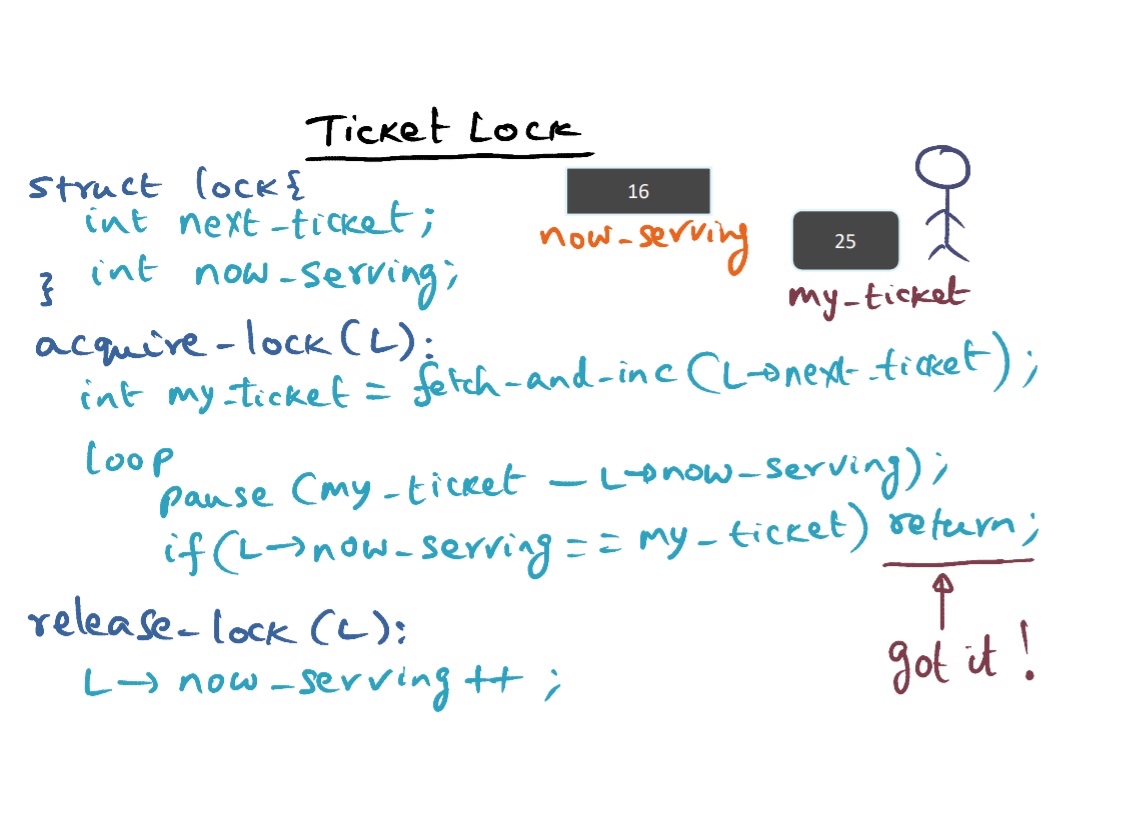 Ticket Lock
struct lock{
int next-ticket;
int now-serving;
}
16
now-serving
25
my-ticket
acquire-lock(L):
int my-ticket = fetch-and-inc(L→next-ticket);
loop
pause (my-ticket - L→now-serving);
if(L→now-serving == my-ticket) return;
got it!
release-lock(L):
L→ now-serving++ ;